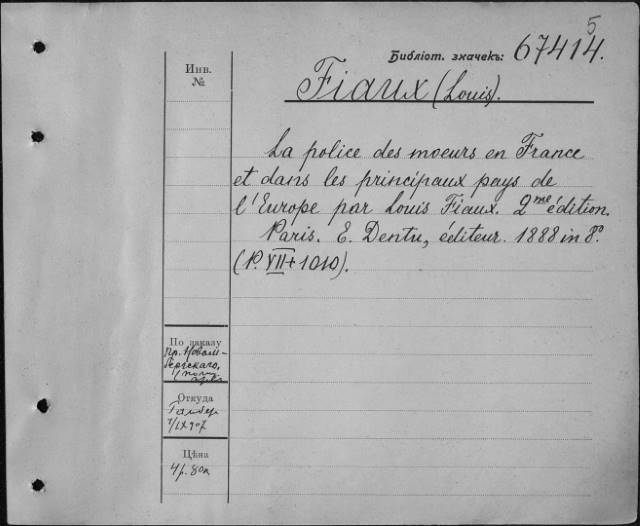 5
Библіот. значекъ: 67414.
Инв.
№
Fiaux (Louis).
La police des moeurs en France
et dans les principaux pays de
l'Europe par Louis Fiaux. 2me édition.
Paris. E. Dentu, éditeur. 1888 in 8º
(P. VII+1010).
По заказу
пр. Новом-
бергскаго,
Откуда
Гальбер
7/IX 907
Цѣна
4р. 80к